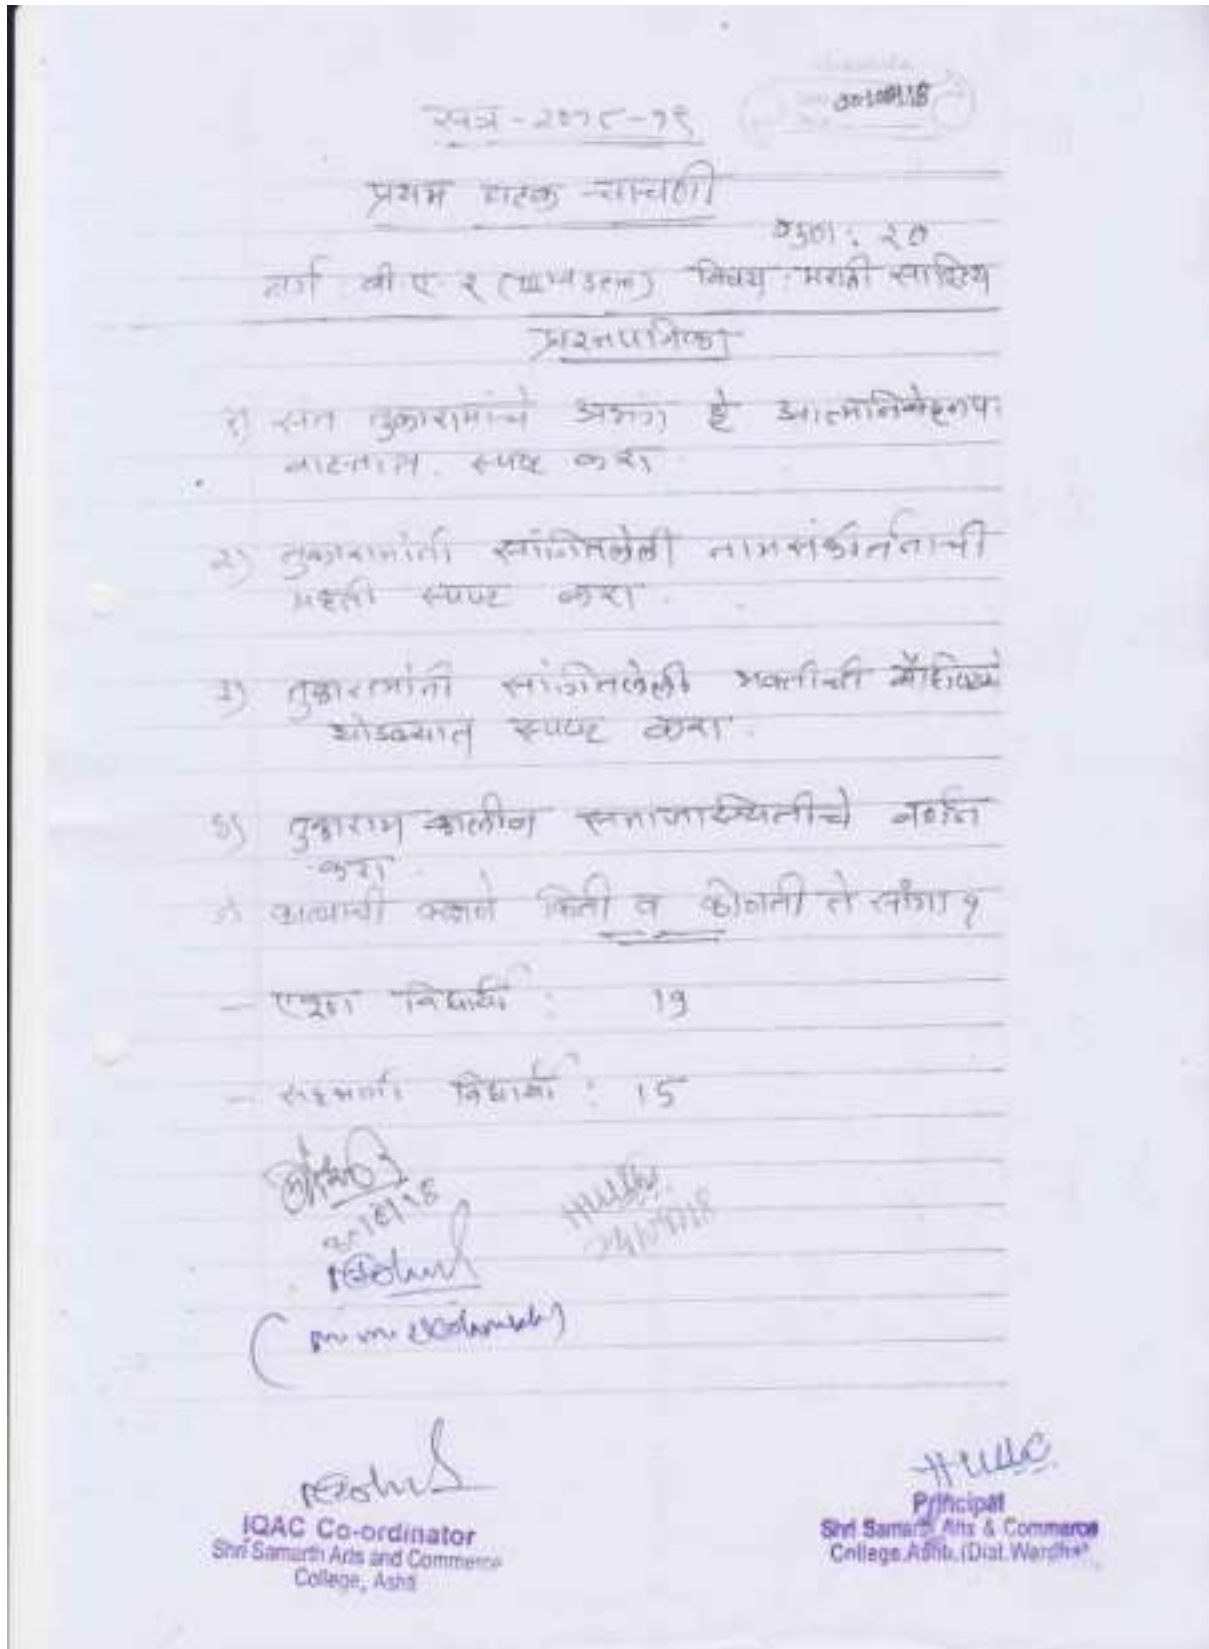 सत्र - २०१८-१९
प्रथम घटक चाचणी
गुण : २०
वर्ग बी. ए. २ ( सेम) विषय : मराठी साहित्य
प्रश्नपत्रिका
१) संत तुकारामांचे अभंग हे आत्मनिवेदनपर
वाटतात. स्पष्ट करा.
२) तुकारामांनी सांगितलेली नामसंकीर्तनाची
महती स्पष्ट करा.
३) तुकारामांनी सांगितलेली भक्तीची वैशिष्ट्ये
थोडक्यात स्पष्ट करा.
४) तुकाराम कालीन समाजस्थितीचे वर्णन
करा.
५) काव्याची किती व कोणती ते सांगा ?
- एकूण विद्यार्थी : 19
- सहभागी विद्यार्थी : 15
IQAC Co-ordinator
Shri Samarth Arts and Commerce
College, Ashti
Principal
Shri Samarth Arts & Commerce
College, Ashti, (Dist. Wardha)